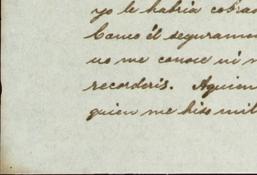 yo le habria cobra
Como él seguramen
no me conoce ni
recorderis. Aquien
quien me hiso mil